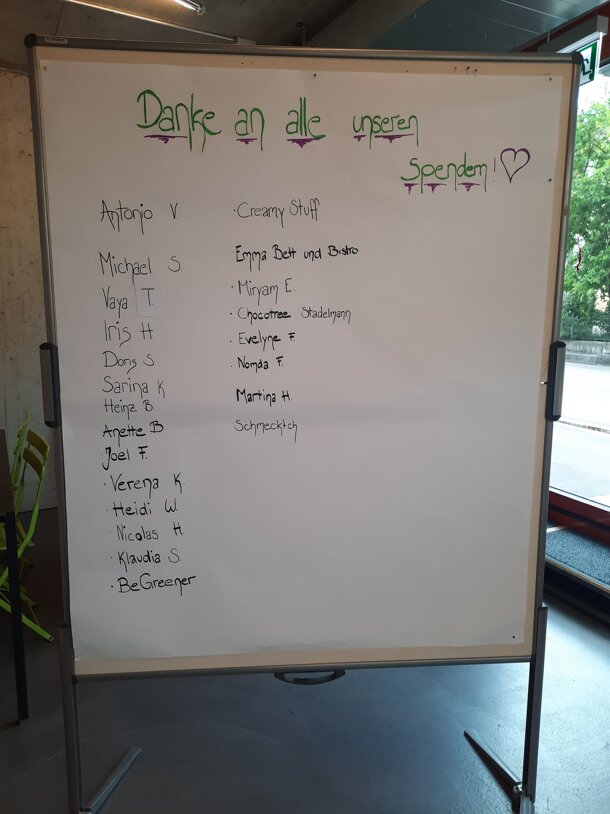 Danke an alle unseren
Spendern!
Antonio V.
Michael S.
Vaya T
Iris H.
Doris S
Sarina K
Heinz B
Anette B
Joel F.
· Verena K
· Heidi W.
· Nicolas H
· Klaudia S.
· BeGreener
· Creamy Stuff
Emma Bett und Bistro
· Miryam E.
· Chocotree Stadelmann
· Evelyne F.
· Nomda F.
Martina H.
Schmecktch